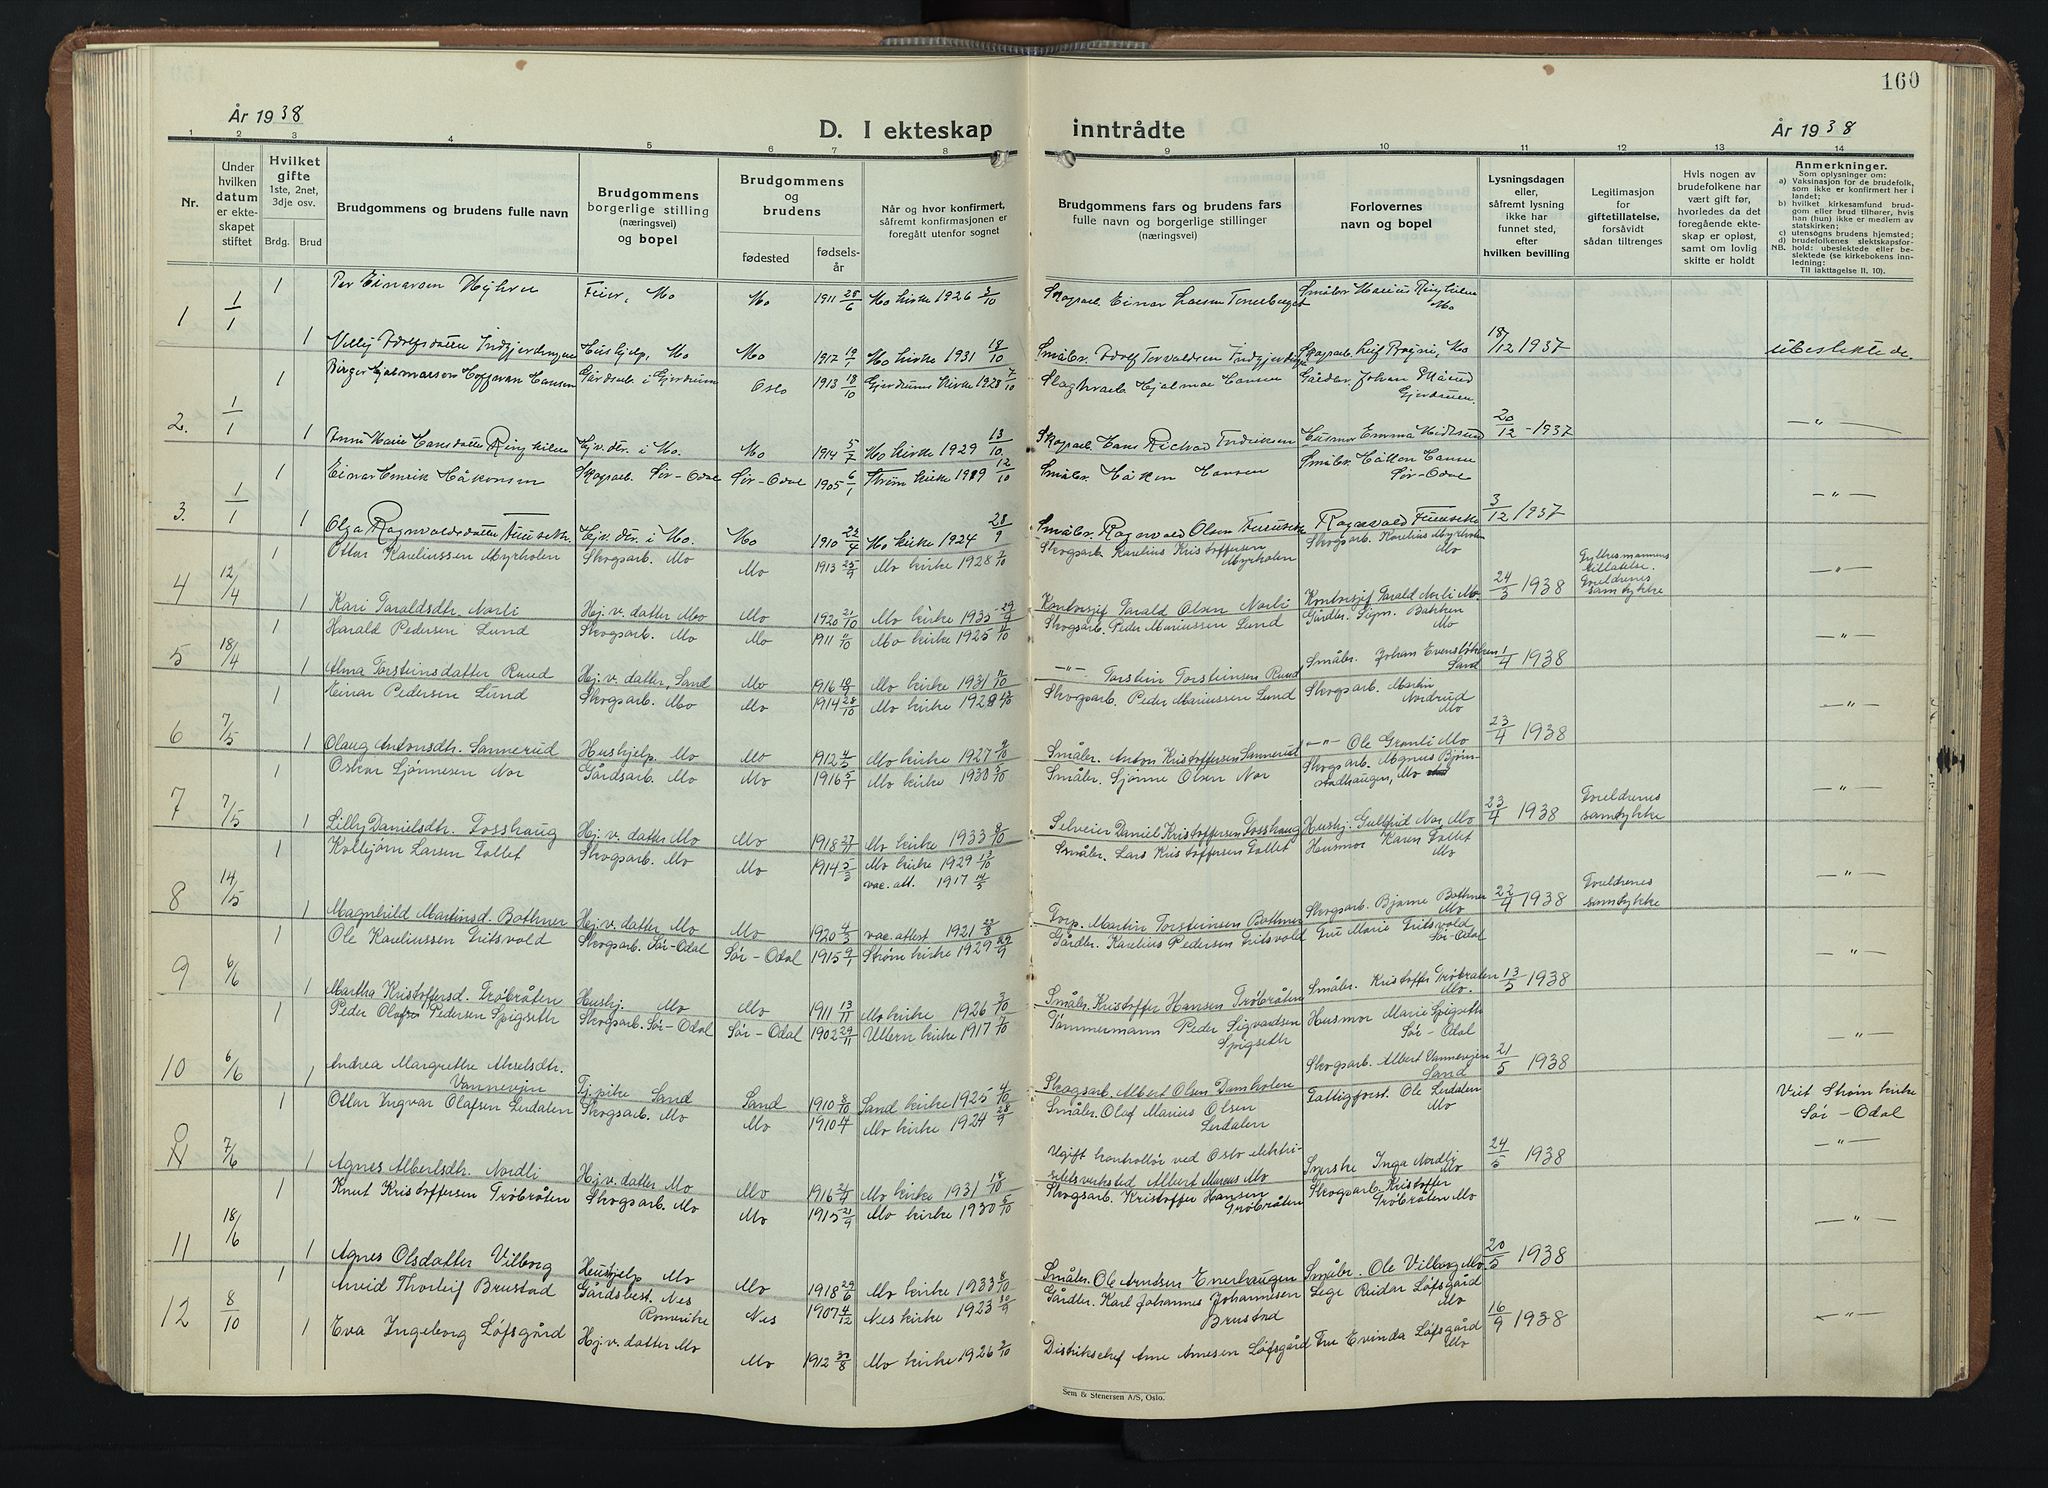 160
År 1938
D. I ekteskap inntrådte
År 1938
1 2 3 4 5 6 7 8 9 10 11 12 13 14
Nr.
Under hvilken datum er ekteskapet stiftet
Hvilket gifte 1ste, 2net, 3dje osv.
Brdg. Brud
Brudgommens og brudens fulle navn
Brudgommens borgerlige stilling (næringsvei) og bopel
Brudgommens og brudens
fødested
fødselsår
Når og hvor konfirmert, såfremt konfirmasjonen er foregått utenfor sognet
Brudgommens fars og brudens fars fulle navn og borgerlige stillinger (næringsvei)
Forlovernes navn og bopel
Lysningsdagen eller, såfremt lysning ikke har funnet sted, efter hvilken bevilling
Legitimasjon for giftetillatelse, forsåvidt sådan tiltrenges
Hvis nogen av brudefolkene har vært gift før, hvorledes da det foregående ekteskap er opløst, samt om lovlig skifte er holdt
Anmerkninger.
Som oplysninger om:
a) Vaksinasjon for de brudefolk, som ikke er konfirmert her i landet;
b) hvilket kirkesamfund brudgom eller brud tilhører, hvis han (hun) ikke er medlem av statskirken;
c) utensogns brudens hjemsted;
d) brudefolkenes slektskapsforhold: ubeslektede eller beslektede (se kirkebokens innledning:
NB.
Til iakttagelse II. 10).
1 1/1 1 Per Einarsen Myhrer Feier, Mo Mo 1911 28/6 Mo kirke 1926 3/10 Skogsarb. Einar Larsen Småbr. Marius Ringkilen Mo
1 Villy Adolfsdatter Hushjelp, Mo Mo 1917 19/1 Mo kirke 1931 18/10 Småbr. Adolf Torvaldsen Skogsarb. Leif Mo 18/12 1937 ubeslektede.
2. 1/1 1 Birger Hjalmarson Hoffman Hansen Gårdsarb. i Gjerdrum Oslo 1913 18/10 Gjerdrums kirke 1928 7/10 Hjalmar Hansen Gårdbr. Johan Gjerdrum.
1 Anna Marie Hansdatter Ringkilen Hj.v.dtr. i Mo. Mo 1914 5/7 Mo kirke 1929 13/10 Skogsarb. Hans Richard Husmor Emma 20/12 - 1937 - " -
3. 1/1 1 Einar Henrik Håkonsen Skogsarb. Sør-Odal Sør-Odal 1905 6/1 Strøm kirke 1919 12/10 Småbr. Håkon Hansen Småbr. Håkon Hansen Sør-Odal
1 Olga Ragnvaldsdatter Furuseth Hj.v.dtr. i Mo. Mo 1910 22/4 Mo kirke 1924 28/9 Småbr. Ragnvald Olsen Furuseth Ragnvald Furuseth 3/12 1937 - " -
4 12/4 1 Ottar Kareliussen Myrholen Skogsarb. Mo Mo 1913 25/9 Mo kirke 1928 7/10 Skogsarb. Karelius Kristoffersen Myrholen Skogsarb. Karelius Myrholen Mo Fylkesmannens tillatelse.
1 Kari Taraldsdtr. Norli Hj.v.datter Mo Mo 1920 21/10 Mo kirke 1935 29/9 Kontorsjef Tarald Olsen Norli Kontorsjef Tarald Norli Mo. 24/3 1938 Foreldrenes samtykke - " -
5 18/4 1 Harald Pedersen Lund Skogsarb. Mo Mo 1911 Mo kirke 1925 Skogsarb. Peder Mariussen Lund Gårdbr. Sigm. Bakken Mo
1 Alma Torsteinsdatter Ruud Hj.v.datter, Sand Mo 1916 Mo kirke 1931 11/10 - " - Torstein Torsteinsen Ruud Småbr. Johan Sand 1/4 1938 - " -
6 7/5 1 Einar Pedersen Lund Skogsarb. Mo Mo 1914 28/10 Mo kirke 1928 Skogsarb. Peder Mariussen Lund Skogsarb. Martin Nordrud Mo
1 Olaug Antonsdtr. Sannerud Hushjelp Mo Mo 1912 4/5 Mo kirke 1927 9/10 Småbr. Anton Kristoffersen Sannerud - " - Ole Granli Mo 23/4 1938 - " -
7 7/5 1 Oskar Sjønnesen Nor Gårdsarb. Mo Mo 1916 5/1 Mo kirke 1930 5/10 Småbr. Sjønne Olsen Nor Skogsarb. Magnus Bjørnstadhaugen, Mo
1 Lilly Danielsdtr. Fosshaug Hj.v.datter Mo Mo 1918 Mo kirke 1933 8/10 Selveier Daniel Kristoffersen Fosshaug Hushj. Gulfrid Nor Mo 23/4 1938 Foreldrenes samtykke - " -
8 14/5 1 Kolbjørn Larsen Fallet Skogsarb. Mo Mo 1914 5/3 Mo kirke 1929 13/10 vac. att. 1917 14/5 Småbr. Lars Kristoffersen Fallet Husmor Karen Fallet Mo
1 Magnhild Martinsd. Bothner Hj.v.datter Mo Mo 1920 4/3 vac. attest 1921 23/8 Torp. Martin Torsteinsen Bothner Skogsarb. Bjarne Bothner Mo 22/4 1938 Foreldrenes samtykke - " -
9 6/6 1 Ole Kareliussen Fritsvold Skogsarb. Sør-Odal Sør-Odal 1915 9/1 Strøm kirke 1929 29/9 Gårdbr. Karelius Pedersen Fritsvold Fru Marie Fritsvold Sør-Odal
1 Martha Kristoffersd. Trøbråten Hushj. Mo Mo 1911 13/11 Mo kirke 1926 3/10 Småbr. Kristoffer Hansen Trøbråten Småbr. Kristoffer Trøbråten Mo. 13/5 1938 - " -
10 6/6 1 Peder Olaf Pedersen Spigseth Skogsarb. Sør-Odal Sør-Odal 1902 29/11 Ullern kirke 1917 7/10 Tømmermann Peder Sigvardsen Spigseth Husmor Marie Spigseth Sør-Odal
1 Andrea Margrethe Vannevjen Tj.pike Sand Sand 1910 8/10 Sand kirke 1925 4/10 Skogsarb. Albert Olsen Damholen Skogsarb. Albert Vannevjen Sand 21/5 1938 - " -
7/6 1 Ottar Ingvar Olafsen Lerdalen Skogsarb. Mo Mo 1910 Mo kirke 1924 28/9 Småbr. Olaf Marius Olsen Lerdalen Fattigforst. Ole Lerdalen Mo Viet Strøm kirke Sør-Odal
1 Agnes Albertsdtr. Nordli Hj.v.datter Mo Mo 1916 Mo kirke 1931 18/10 Ugift kontrollør ved Oslo elektrisitetsverksted Albert Marcus Mo Syerske Inga Nordli Mo 24/5 1938 - " -
11 18/6 1 Knut Kristoffersen Trøbråten Skogsarb. Mo Mo 1915 21/9 Mo kirke 1930 5/10 Skogsarb. Kristoffer Hansen Trøbråten Skogsarb. Kristoffer Trøbråten Mo
1 Agnes Olsdatter Vilberg Hushjelp Mo Mo 1918 29/6 Mo kirke 1933 8/10 Småbr. Ole Arndsen Enerhaugen Småbr. Ole Vilberg Mo 20/5 1938 - " -
12 8/10 1 Arvid Thorleif Brustad Gårdsbest. Nes Romerike Nes 1907 4/12 Nes kirke 1923 30/9 Gårdbr. Karl Johannes Johannesen Brustad Lege Reidar Løfsgård Mo
1 Eva Ingeborg Løfsgård Hj.v.datter Mo Mo 1912 30/8 Mo kirke 1926 3/10 Distriktschef Arne Arnesen Løfsgård Fru Evinda Løfsgård Mo 16/9 1938 - " -
Sem & Stenersen A/S, Oslo.